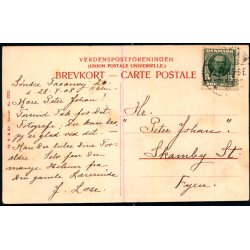 VERDENSPOSTFORENINGEN
(UNION POSTALE UNIVERSELLE.)
BREVKORT — CARTE POSTALE
DANMARK
5
Søndre Fasanvej 20
d. 28.4.08.
Kære Peter Johan!
Tusend Tak for Dit
Fotografi. Du kan tro,
jeg er glad ved det.
Kan Du hilse Dine For-
ældre. Selv faar Du
mange Hilsner fra
Din gamle Lærerinde
J.
Hr.
Peter Johan
St.
Fyen.